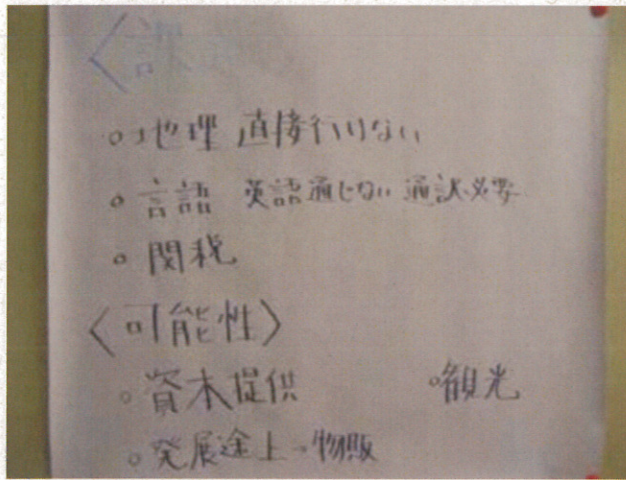 。地理 直接行けない
。言語 英語通じない 通訳必要
。関税
〈可能性〉
。資本提供 。観光
。発展途上→物販